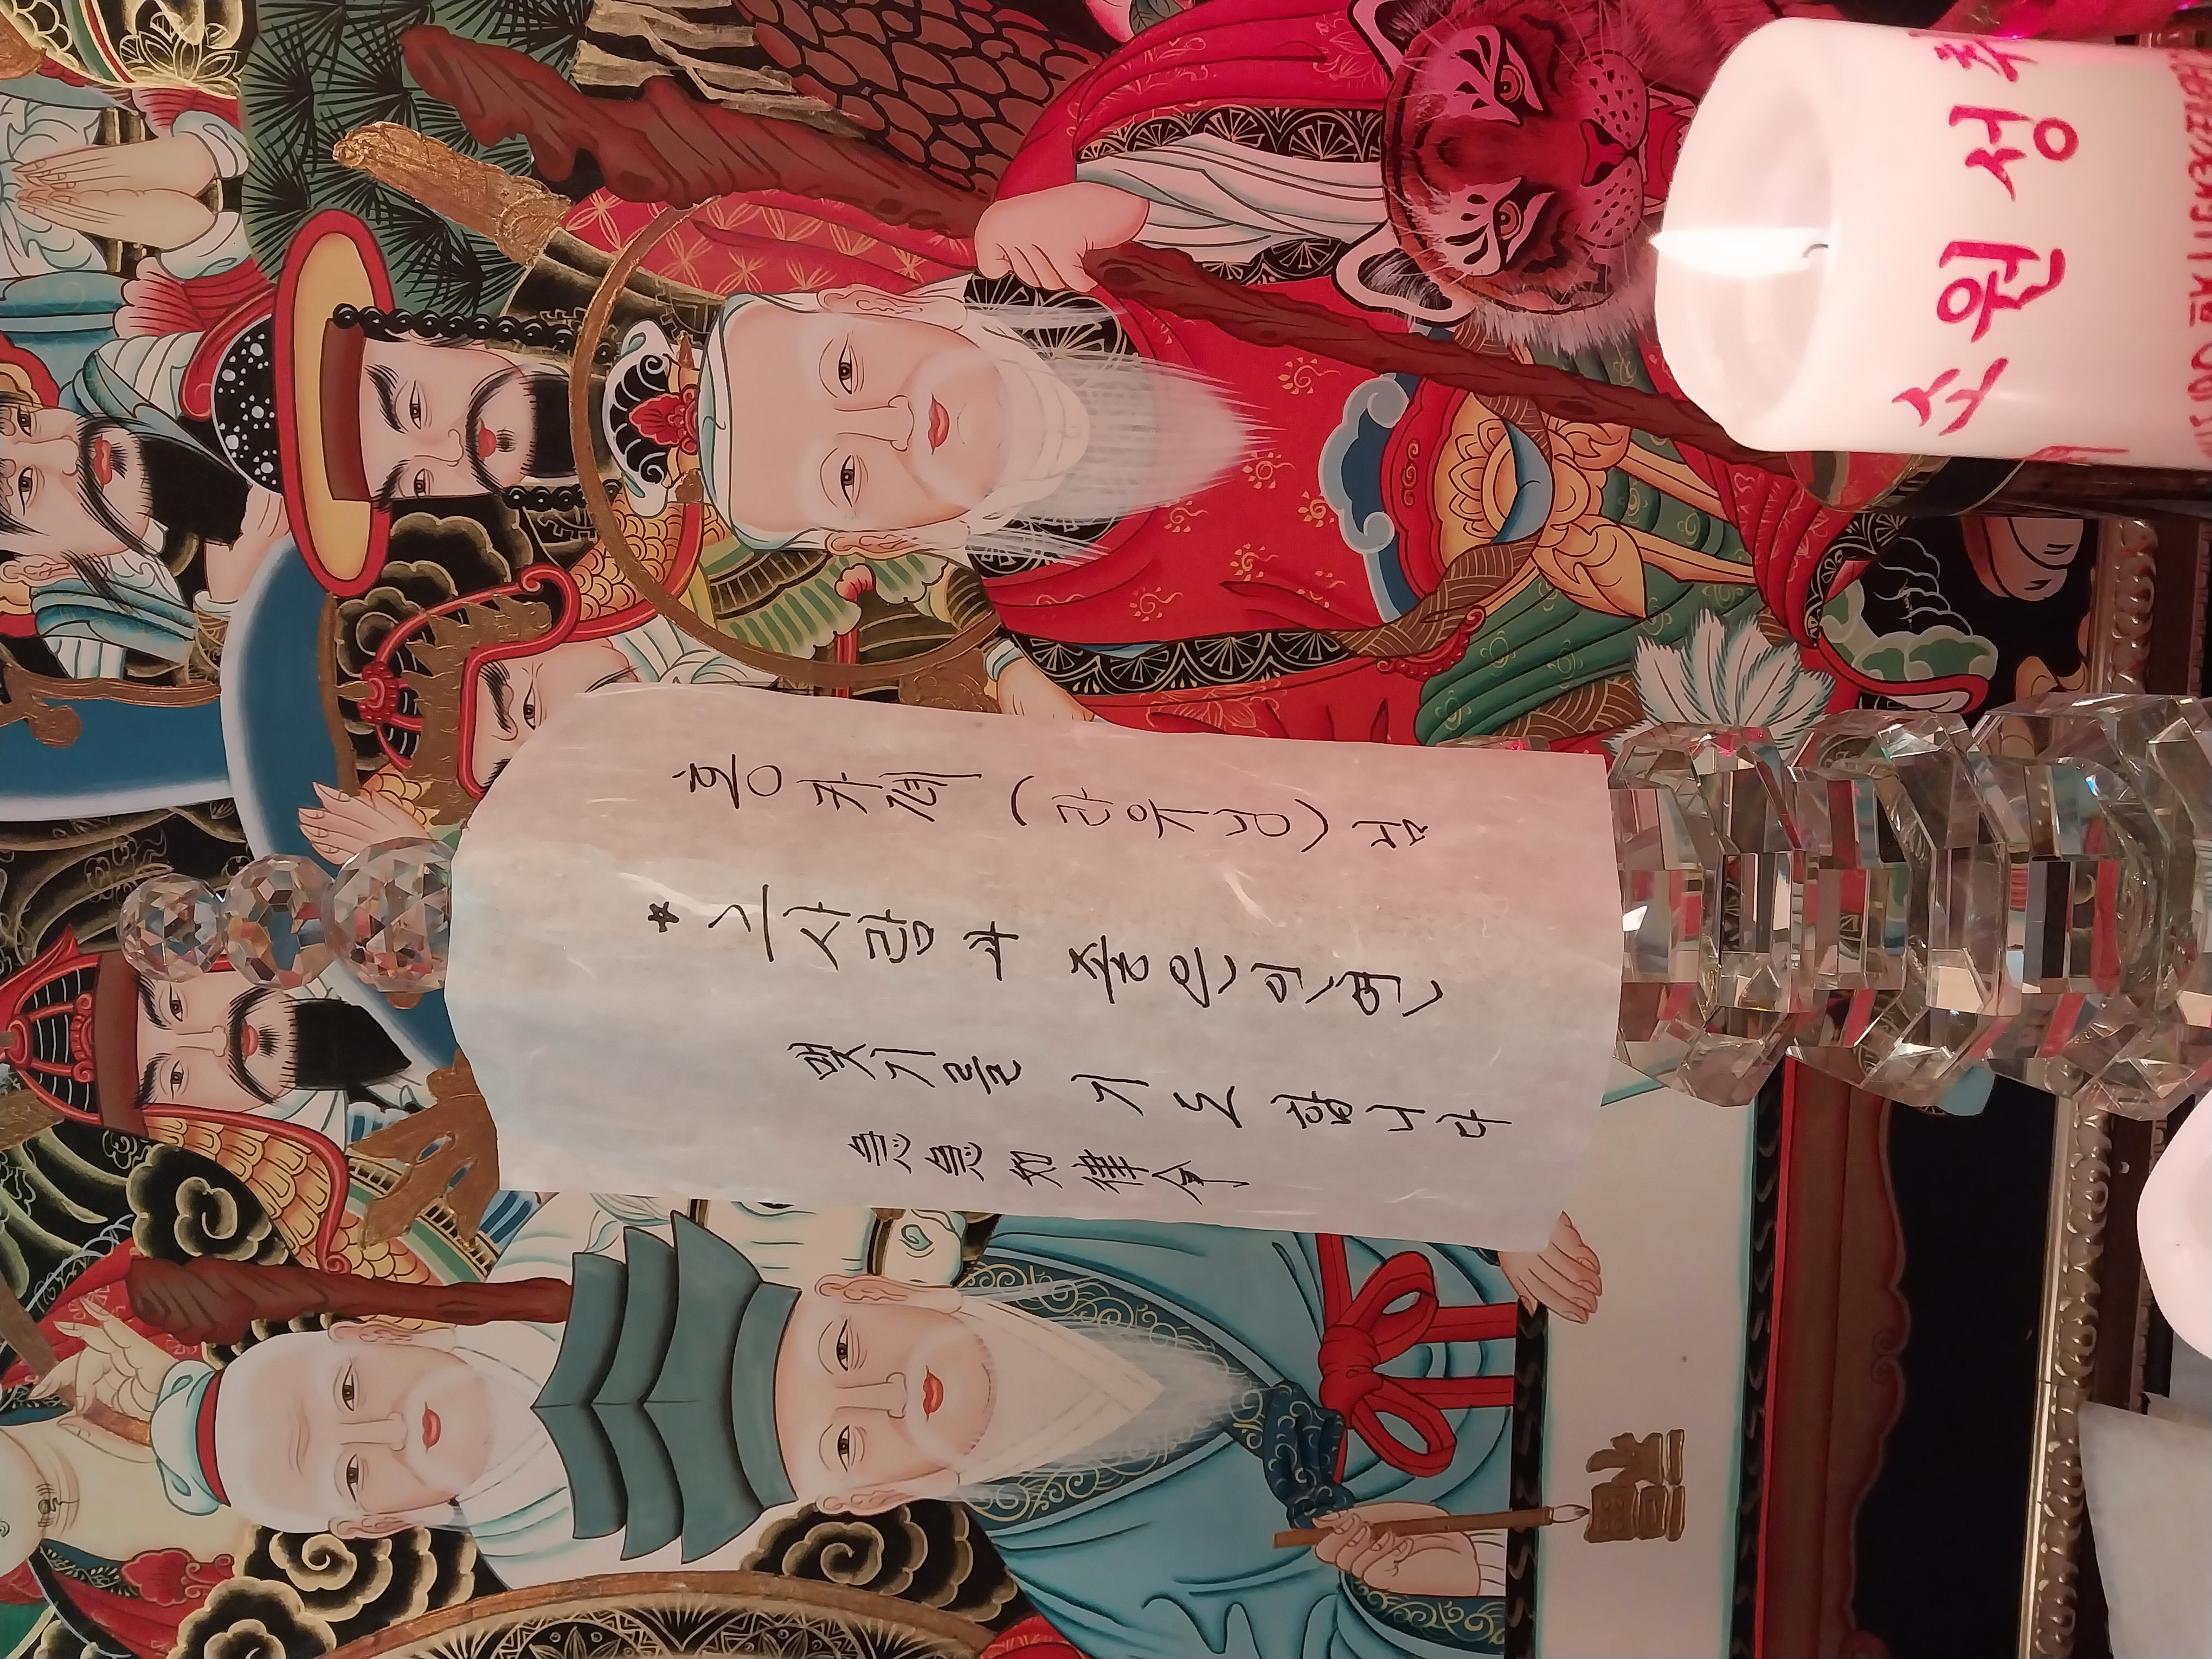 홍카례 (라위닝) 님
* 그사람과 좋은인연
맺기를 기도합니다
急急如律令
소원성
福